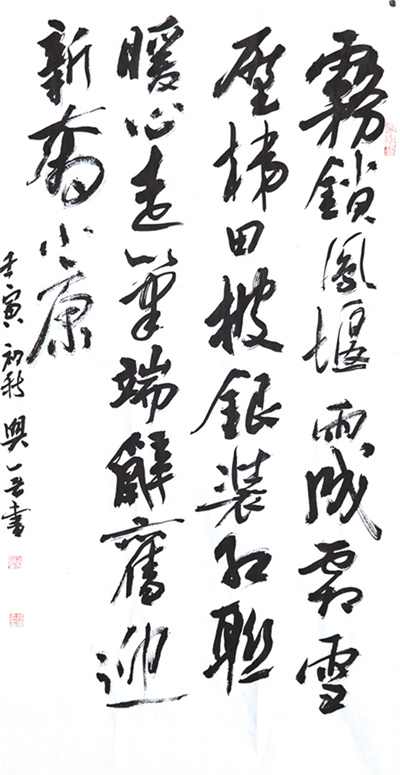 霧鎖鳳堰雨成霜雪
壓梯田披銀裝紅聯
暖心走筆端辭舊迎
新小康
壬寅初秋興書